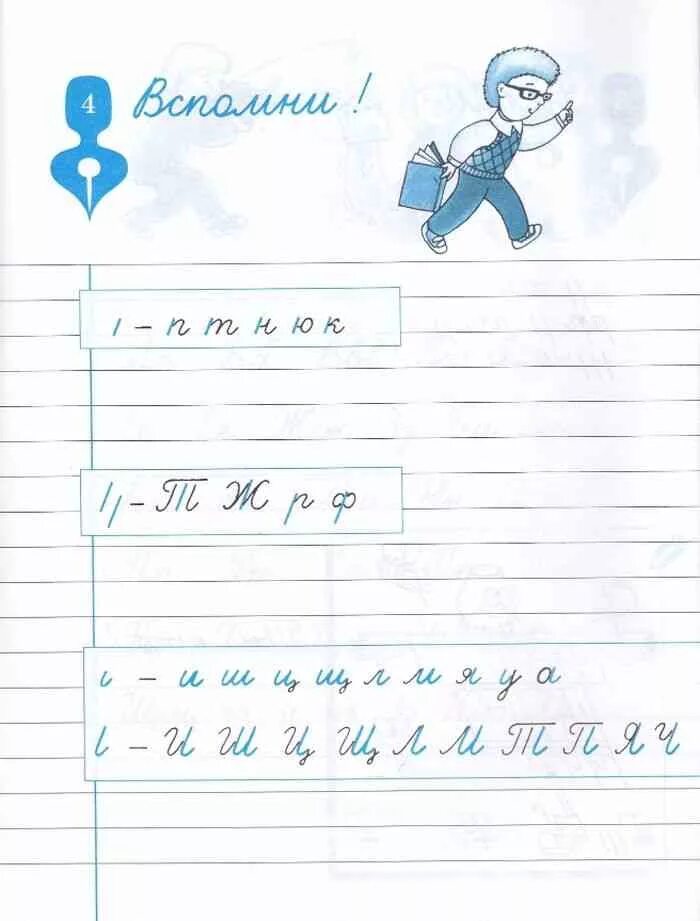 4
Вспомни!
ı – п т н ю к
Ɩȷ – Т Ж р ф
ι – и ш ц щ л м я у а
ɩ – И Ш Ц Щ Л М Т П Я Ч